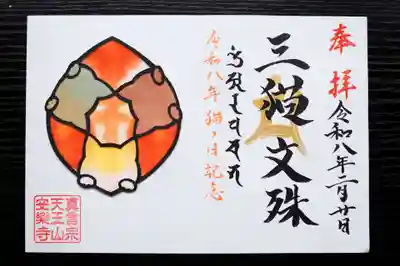 奉拝
令和八年二月廿日
三猫文殊
令和八年猫の日記念
真言宗
天王山
安樂寺